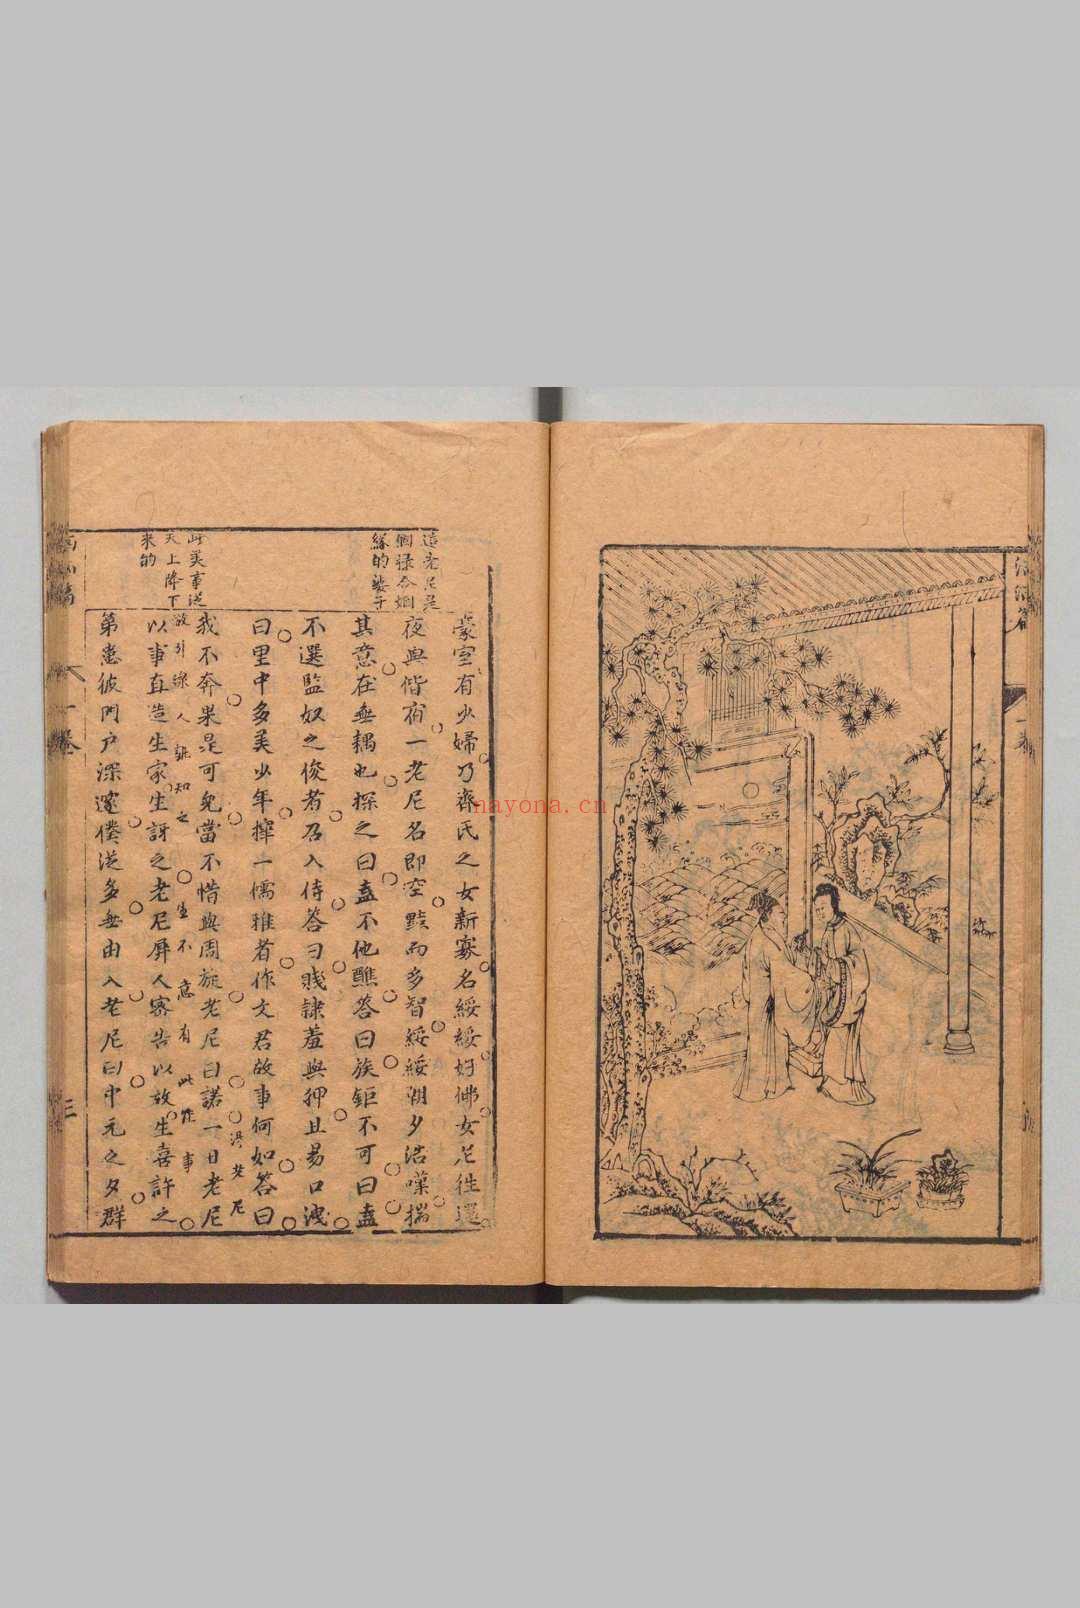 一卷
這老尼是
個祿合姻
緣的婆子
此美事從
天上降下
來的
豪室有少婦乃齊氏之女新寡名綏綏好佛女尼往還
夜與偕宿一老尼名即空黠而多智綏綏朝夕沾嘆揣
其意在無耦也探之曰盍不他醮答曰族鉅不可曰盍
不選監奴之俊者召入侍答曰賤隸羞與狎且易口洩
曰里中多美少年擇一儒雅者作文君故事何如答曰
我不奔果是可免當不惜與周旋老尼曰諾一日老尼
没老尼
放引線人誰知之生不意有此怪事
以事直造生家生訝之老尼屏人密告以故生喜許之
第患彼門戶深邃僕從多無由入老尼曰中元之夕群
一卷
三
nayona.cn